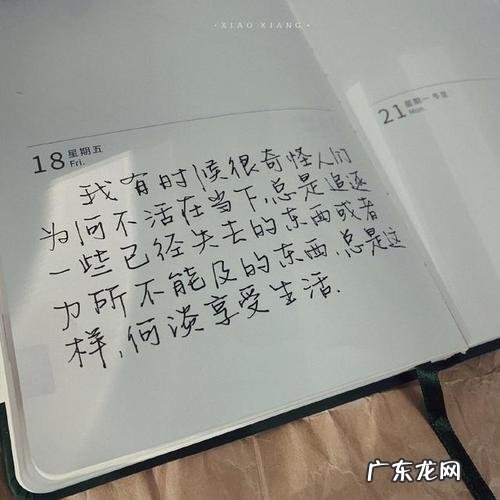 ·XIAO XIANG·
18 星期五
Fri.
我有时候很奇怪人们
为何不活在当下,总是追逐
一些已经失去的东西或者
力所不能及的东西,总是这
样,何谈享受生活.
21 星期一 冬至
Mon.
广东龙网